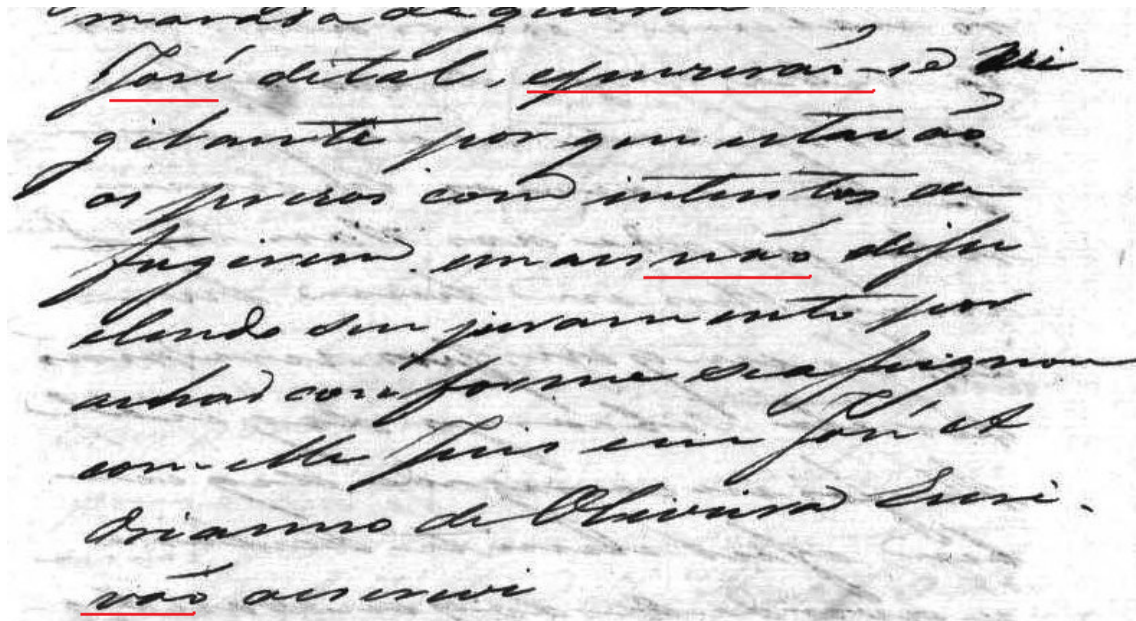 marada de guarda
José dital, epurerão-se Wi-
gilante por que estavão
os prezos com intentos de
fugirem emais não dise
elendo seu juramento por
achar conforme se afirgnou
com elle Juis eeu José A
drianno de Oliveira Escri.
vão oescrevi